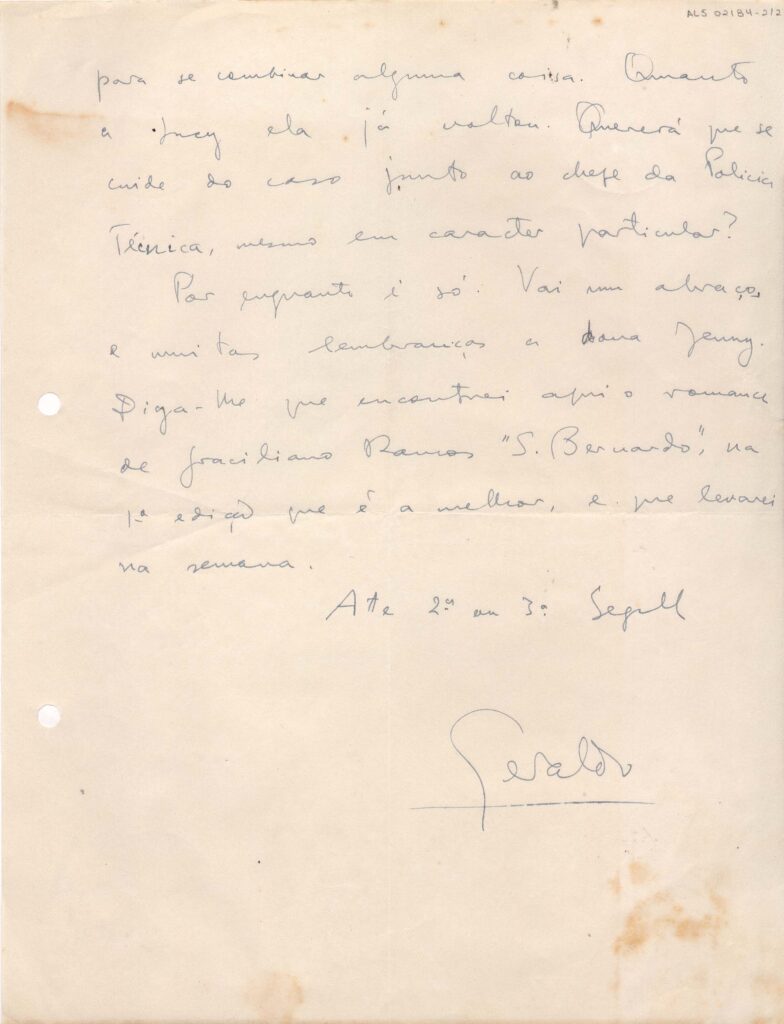 ALS 02184-2/2
para se combinar alguma coisa. Quanto
a Lucy ela já voltou. Quererá que se
cuide do caso junto ao chefe da Policia
Técnica, mesmo em caracter particular?
Por enquanto é só. Vai um abraço,
e muitas lembranças a dona Jenny.
Diga-lhe que encontrei aqui o romance
de Graciliano Ramos "S. Bernardo", na
1ª edição que é a melhor, e que levarei
na semana.
Atte 2ª ou 3ª Segall
Geraldo